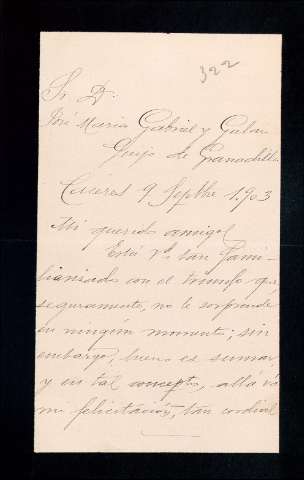 322
Sr. D.
José Maria Gabriel y Galan
Guijo de Granadilla
Cáceres 9 Septbre 1903
Mi querido amigo:
Está Vd. tan fami-
liarizado con el triunfo que,
seguramente, no le sorprende
en ningún momento; sin
embargo, bueno es sumar,
y en tal concepto, allá va
mi felicitación, tan cordial